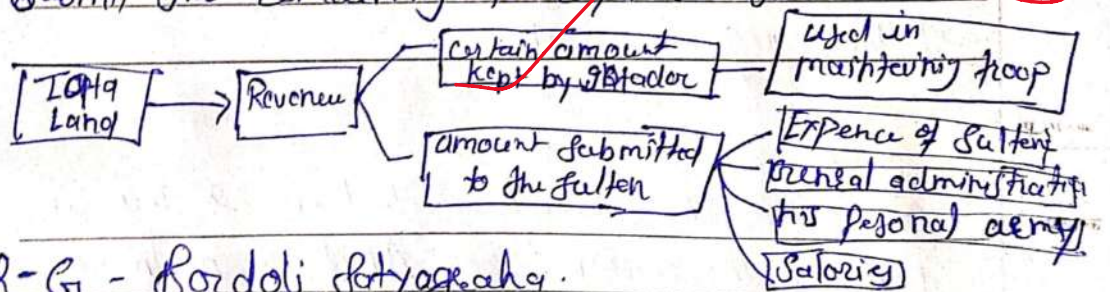 Iqta
Land
Revenue
certain amount
kept by iqtador
used in
maintaining troop
amount submitted
to the sultan
Expence of Sultans
General administration
his pesonal army
Salaries
Q-G- Bordoli Satyagraha.